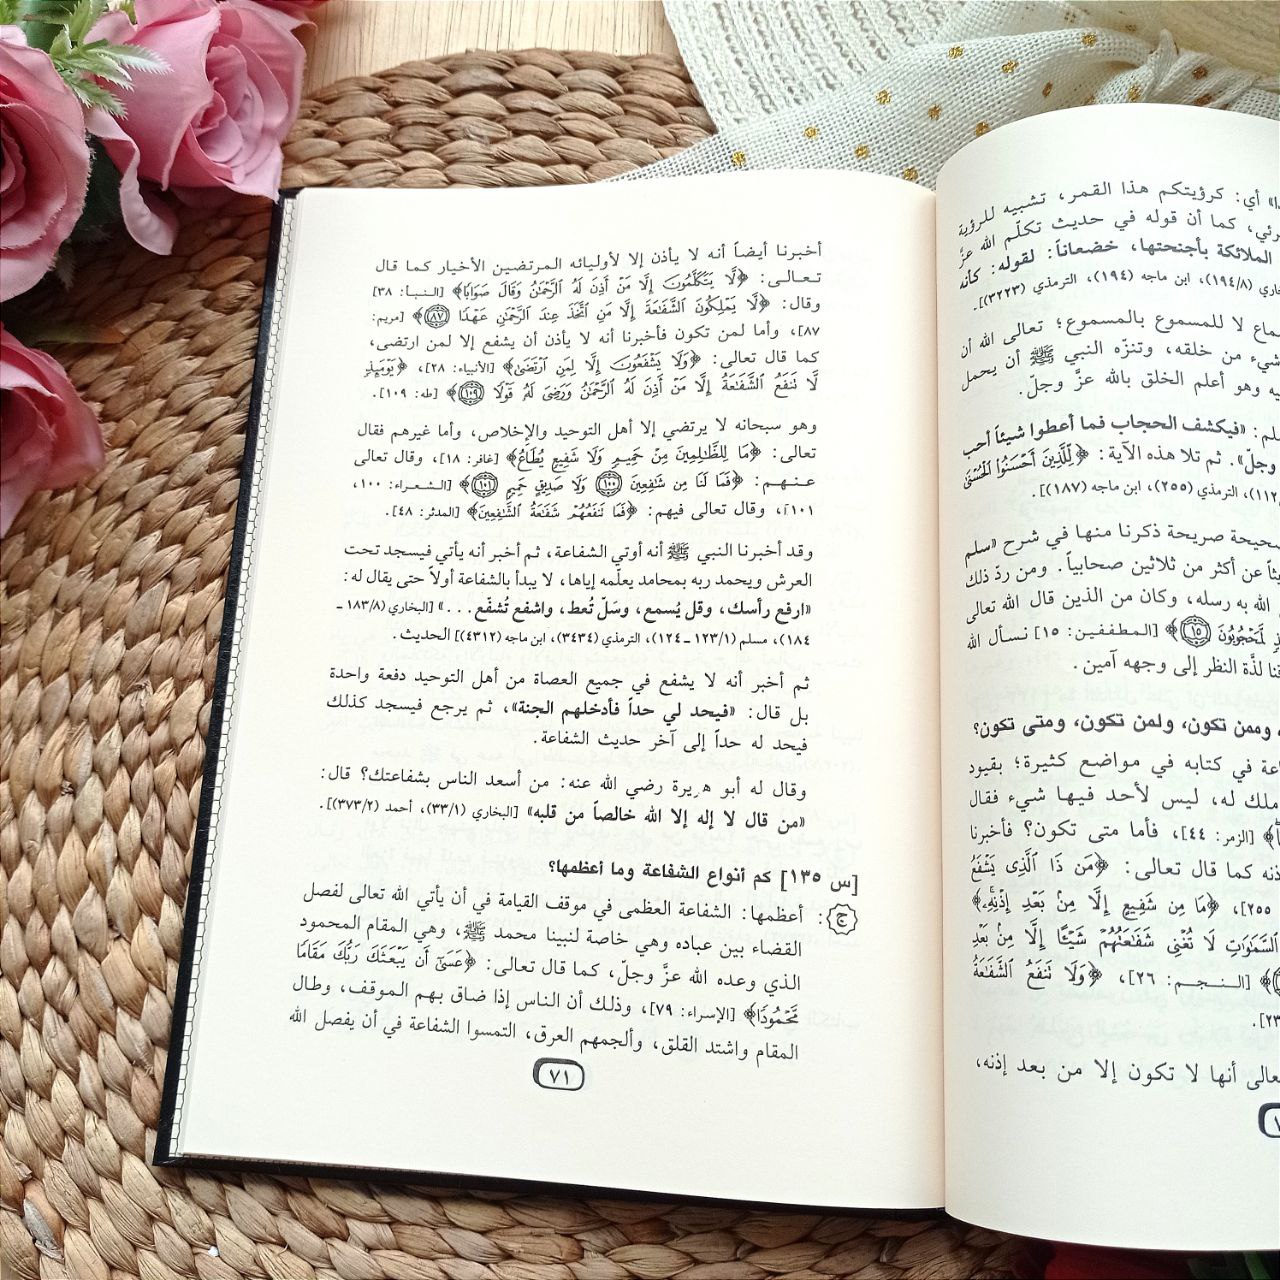 ا» أي: كرؤيتكم هذا القمر، تشبيه للرؤية
رئي، كما أن قوله في حديث تكلّم الله عزَّ
الملائكة بأجنحتها، خضعاناً: لقوله: كأنه
(١٩٤/٨)، ابن ماجه (١٩٤)، الترمذي (٣٢٢٣)].
ماع لا للمسموع بالمسموع؛ تعالى الله أن
شيء من خلقه، وتنزّه النبي ﷺ أن يحمل
يه وهو أعلم الخلق بالله عزَّ وجلّ.
لم: «فيكشف الحجاب فما أعطوا شيئاً أحب
وجلّ». ثم تلا هذه الآية: ﴿لِّلَّذِينَ أَحْسَنُوا الْحُسْنَىٰ
١١٢)، الترمذي (٢٥٥)، ابن ماجه (١٨٧)].
صحيحة صريحة ذكرنا منها في شرح «سلم
يثاً عن أكثر من ثلاثين صحابياً. ومن ردّ ذلك
الله به رسله، وكان من الذين قال الله تعالى
ذٍ لَّمَحْجُوبُونَ ١٥﴾ [المطففين: ١٥] نسأل الله
نا لذَّة النظر إلى وجهه آمين.
، وممن تكون، ولمن تكون، ومتى تكون؟
اعة في كتابه في مواضع كثيرة؛ بقيود
ملك له، ليس لأحد فيها شيء فقال
﴾ [الزمر: ٤٤]، فأما متى تكون؟ فأخبرنا
ذنه كما قال تعالى: ﴿مَن ذَا الَّذِي يَشْفَعُ
٢٥٥]، ﴿مَا مِن شَفِيعٍ إِلَّا مِنۢ بَعْدِ إِذْنِهِۦ﴾
السَّمَٰوَٰتِ لَا تُغْنِي شَفَٰعَتُهُمْ شَيْـًٔا إِلَّا مِنۢ بَعْدِ
﴾ [النجم: ٢٦]، ﴿وَلَا تَنفَعُ الشَّفَٰعَةُ
٢٣].
عالى أنها لا تكون إلا من بعد إذنه،
أخبرنا أيضاً أنه لا يأذن إلا لأوليائه المرتضين الأخيار كما قال
تعالى: ﴿لَّا يَتَكَلَّمُونَ إِلَّا مَنْ أَذِنَ لَهُ الرَّحْمَٰنُ وَقَالَ صَوَابًا﴾ [النبأ: ٣٨]
وقال: ﴿لَّا يَمْلِكُونَ الشَّفَٰعَةَ إِلَّا مَنِ اتَّخَذَ عِندَ الرَّحْمَٰنِ عَهْدًا ٨٧﴾ [مريم:
٨٧]، وأما لمن تكون فأخبرنا أنه لا يأذن أن يشفع إلا لمن ارتضى،
كما قال تعالى: ﴿وَلَا يَشْفَعُونَ إِلَّا لِمَنِ ارْتَضَىٰ﴾ [الأنبياء: ٢٨]، ﴿يَوْمَئِذٍ
لَّا تَنفَعُ الشَّفَٰعَةُ إِلَّا مَنْ أَذِنَ لَهُ الرَّحْمَٰنُ وَرَضِيَ لَهُ قَوْلًا ١٠٩﴾ [طه: ١٠٩].
وهو سبحانه لا يرتضي إلا أهل التوحيد والإخلاص، وأما غيرهم فقال
تعالى: ﴿مَا لِلظَّٰلِمِينَ مِنْ حَمِيمٍ وَلَا شَفِيعٍ يُطَاعُ﴾ [غافر: ١٨]، وقال تعالى
عنهم: ﴿فَمَا لَنَا مِن شَٰفِعِينَ ١٠٠ وَلَا صَدِيقٍ حَمِيمٍ ١٠١﴾ [الشعراء: ١٠٠،
١٠١]، وقال تعالى فيهم: ﴿فَمَا تَنفَعُهُمْ شَفَٰعَةُ الشَّٰفِعِينَ﴾ [المدثر: ٤٨].
وقد أخبرنا النبي ﷺ أنه أوتي الشفاعة، ثم أخبر أنه يأتي فيسجد تحت
العرش ويحمد ربه بمحامد يعلّمه إياها، لا يبدأ بالشفاعة أولاً حتى يقال له:
«ارفع رأسك، وقل يُسمع، وسَلّ تُعط، واشفع تُشفّع ...» [البخاري (١٨٣/٨ ـ
١٨٤)، مسلم (١٢٣/١ ـ ١٢٤)، الترمذي (٣٤٣٤)، ابن ماجه (٤٣١٢)] الحديث.
ثم أخبر أنه لا يشفع في جميع العصاة من أهل التوحيد دفعة واحدة
بل قال: «فيحد لي حداً فأدخلهم الجنة»، ثم يرجع فيسجد كذلك
فيحد له حداً إلى آخر حديث الشفاعة.
وقال له أبو هريرة رضي الله عنه: من أسعد الناس بشفاعتك؟ قال:
«من قال لا إله إلا الله خالصاً من قلبه» [البخاري (٣٣/١)، أحمد (٣٧٣/٢)].
[س ١٣٥] كم أنواع الشفاعة وما أعظمها؟
ج: أعظمها: الشفاعة العظمى في موقف القيامة في أن يأتي الله تعالى لفصل
القضاء بين عباده وهي خاصة لنبينا محمد ﷺ، وهي المقام المحمود
الذي وعده الله عزَّ وجلّ، كما قال تعالى: ﴿عَسَىٰٓ أَن يَبْعَثَكَ رَبُّكَ مَقَامًا
مَّحْمُودًا﴾ [الإسراء: ٧٩]، وذلك أن الناس إذا ضاق بهم الموقف، وطال
المقام واشتد القلق، وألجمهم العرق، التمسوا الشفاعة في أن يفصل الله
٧١